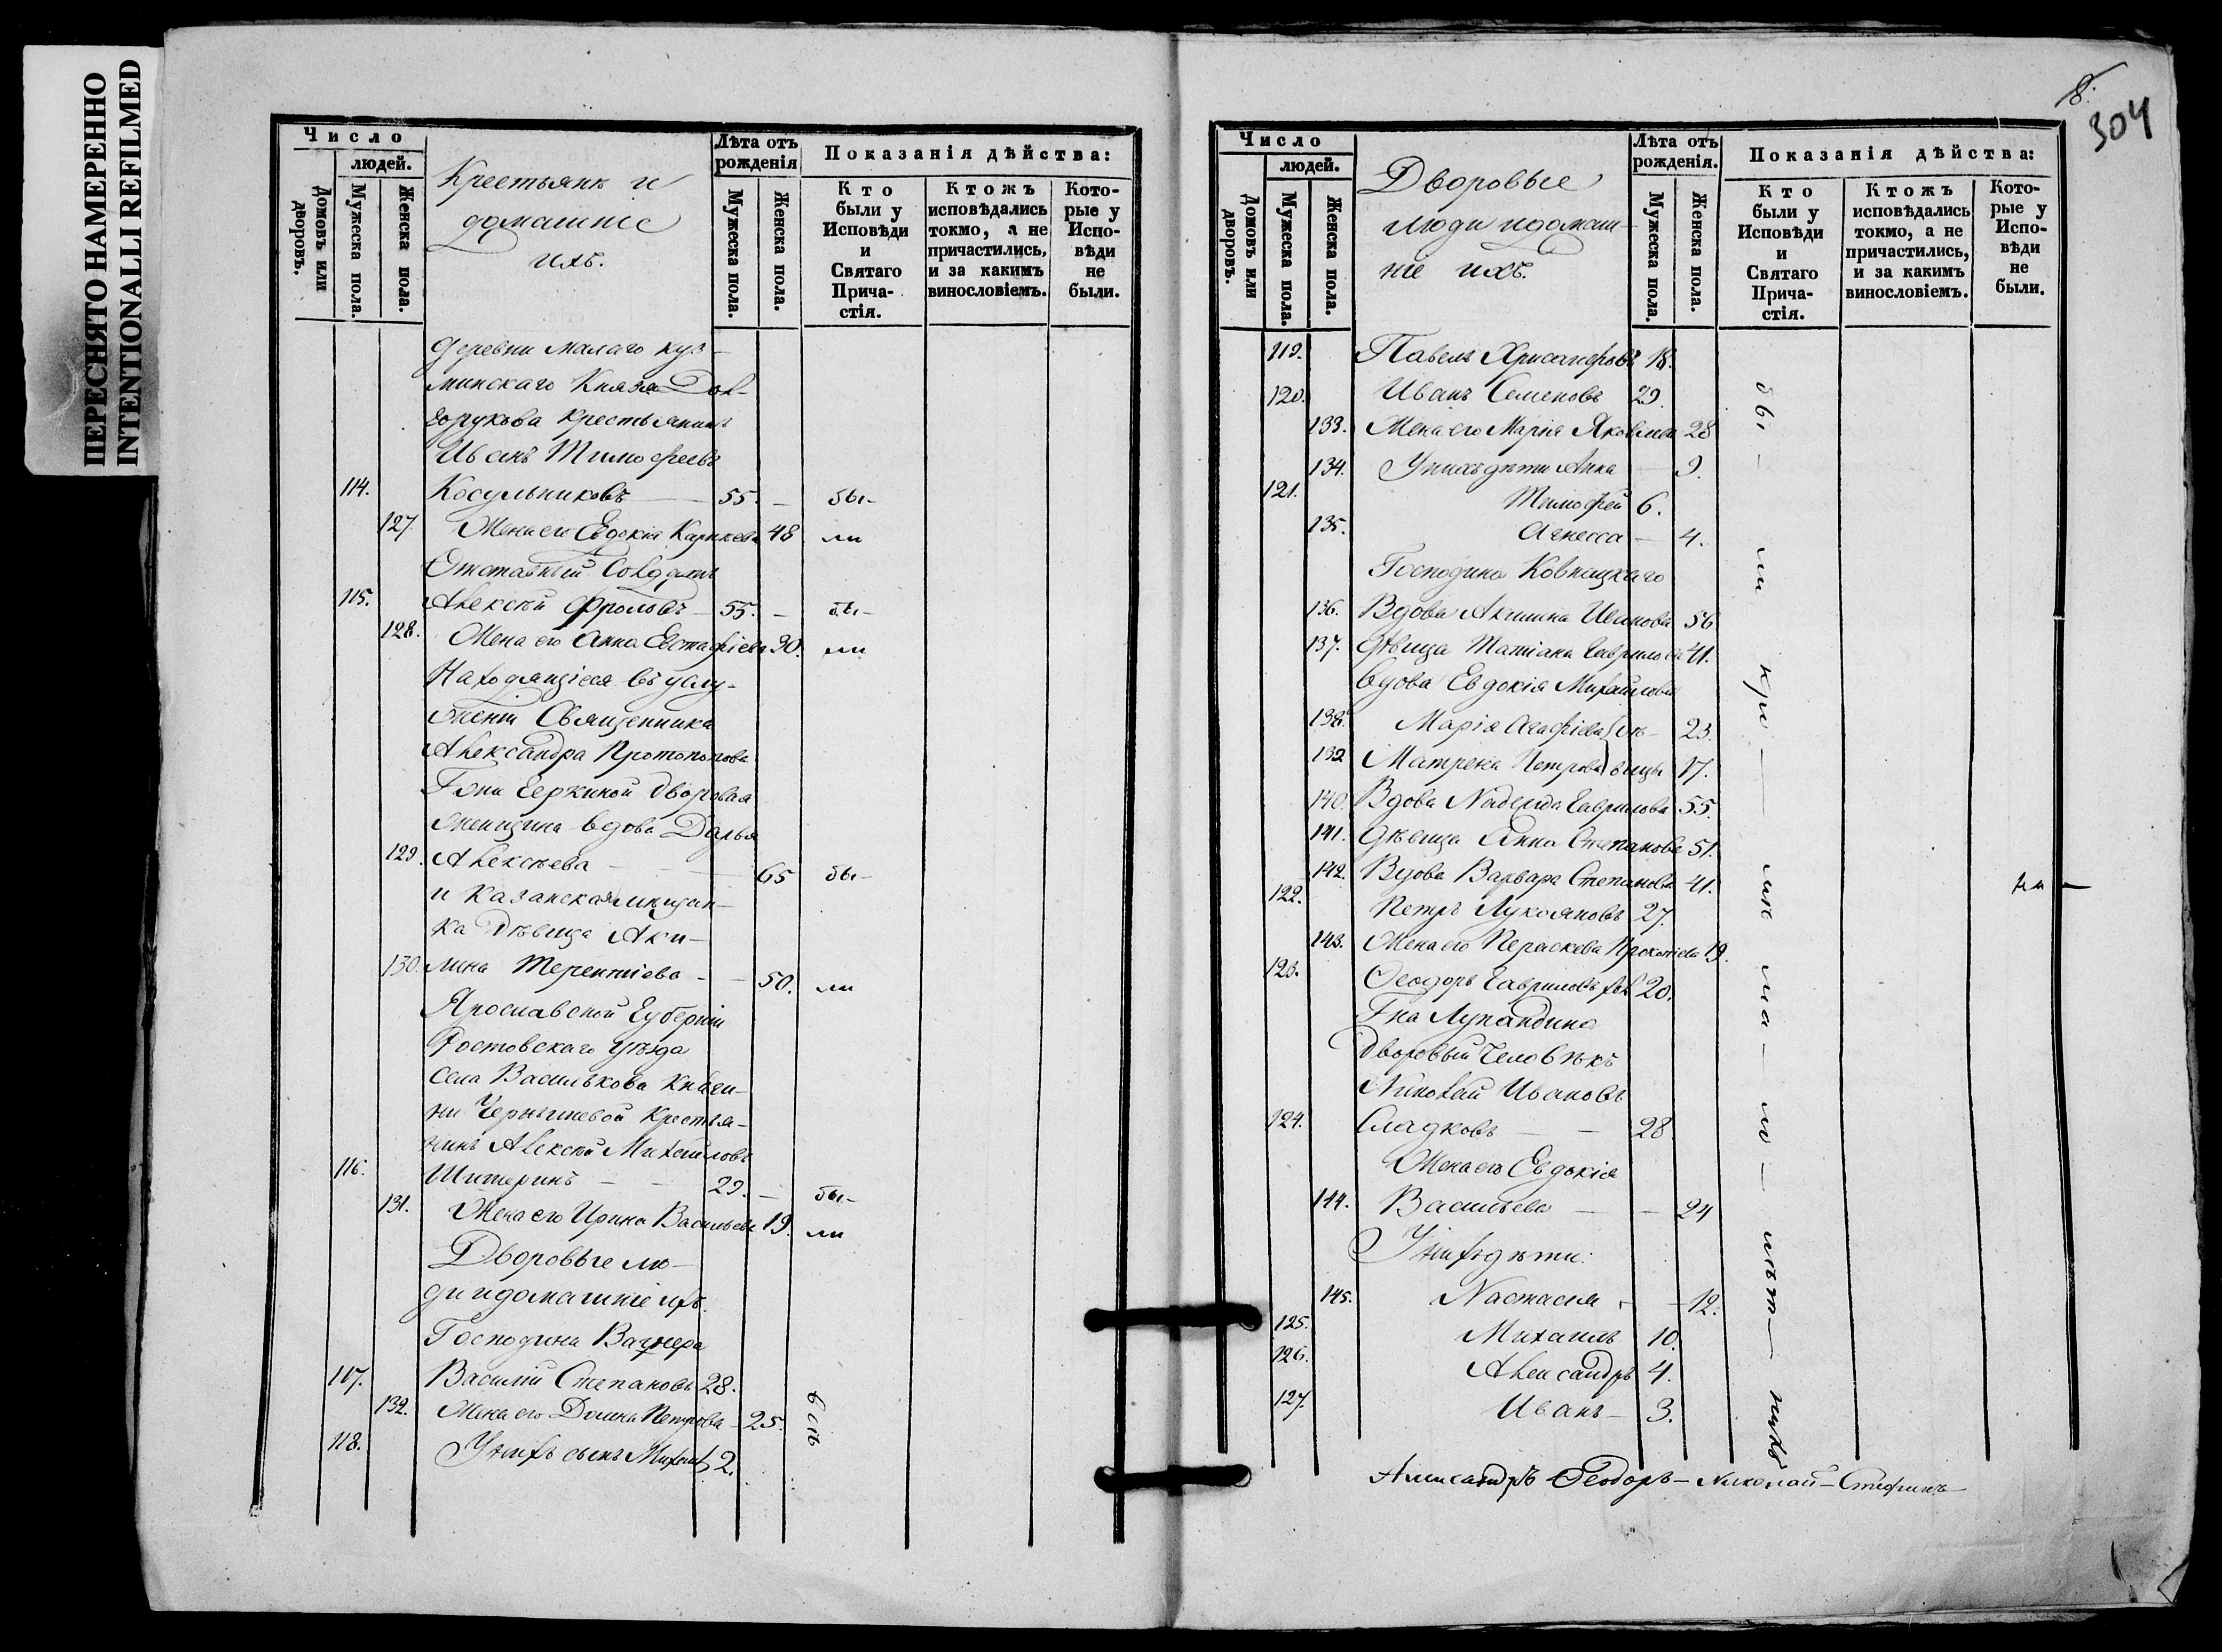 ПЕРЕСНЯТО НАМЕРЕННО
INTENTIONALLI REFILMED
Число
людей.
Домовъ или дворовъ.
Мужеска пола.
Женска пола.
Крестьянъ и
домашніе
ихъ.
Лѣта отъ рожденія
Мужеска пола.
Женска пола.
Показанія дѣйства:
Кто были у Исповѣди и Святаго Прича-стія.
Ктожъ исповѣдались токмо, а не причастились, и за какимъ винословіемъ.
Кото-рые у Испо-вѣди не были.
деревни Малаго Куз-
минскаго Князя Дол-
горукова крестьянинъ
Иванъ Тимофеевъ
114. Косульниковъ — 55. — бы-
127. Жена его Евдокія 48 ли
Отставный Солдатъ
115. Алексѣй Фроловъ — 55. — бы-
128. Жена его Анна Евстафіева 30. ли
Находящіеся въ услу-
женіи Священника
Александра Протопопова
Гжи дворовая
женщина вдова Дарья
129. Алексѣева — 65 бы-
и Казанская мѣщан-
ка Дѣвица Аку-
130. лина Терентіева - — 50. ли
Ярославской Губерніи
Ростовскаго Уѣзда
Села Василькова Княги-
ни Чернышевой Крестья-
нинъ Алексѣй Михайловъ
116. Шитеринъ — — 29. — бы-
131. Жена его Ирина Васильева 19. ли
Дворовые лю-
ди и домашніе ихъ.
Господина Вагнера
117. Василій Степановъ 28.
132. Жена его Домна Петрова 25.
118. У нихъ сынъ Михаилъ 2.
8.
304
Число
людей.
Домовъ или дворовъ.
Мужеска пола.
Женска пола.
Дворовые
люди и домаш-
ніе ихъ.
Лѣта отъ рожденія.
Мужеска пола.
Женска пола.
Показанія дѣйства:
Кто были у Исповѣди и Святаго Прича-стія.
Ктожъ исповѣдались токмо, а не причастились, и за какимъ винословіемъ.
Кото-рые у Испо-вѣди не были.
119. Павелъ Хрисанфовъ 18.
120. Иванъ Семеновъ 29.
133. Жена его Марія Яковлева 28
134. У нихъ дѣти Анна — 9.
121. Тимофей 6.
135. Агнесса — 4.
Господина Ковницкаго
136. Вдова Акилина Иванова 56
137. Дѣвица Татіана Гаврилова 41.
вдова Евдокія Михайлова
138. Марія Агафіева дѣ- 23.
139. Матрена Петрова вицы 17.
140. Вдова Надежда Гаврилова 55.
141. Дѣвица Анна Степанова 51.
142. Вдова Варвара Степанова 41.
122. Петръ Лукояновъ 27.
143. Жена его Пераскева Прокопіева 19.
123. Феодоръ Гавриловъ хол 20.
Гна Лупандина
Дворовый Человѣкъ
Николай Ивановъ
124. Сладковъ — — 28
Жена его Евдокія
144. Васильева — — 24
У нихъ дѣти:
145. Настасія - — 12.
125. Михаилъ 10.
126. Александръ 4.
127. Иванъ — 3.
бы — ли
Александръ Феодоръ — Николай — Стефанъ —